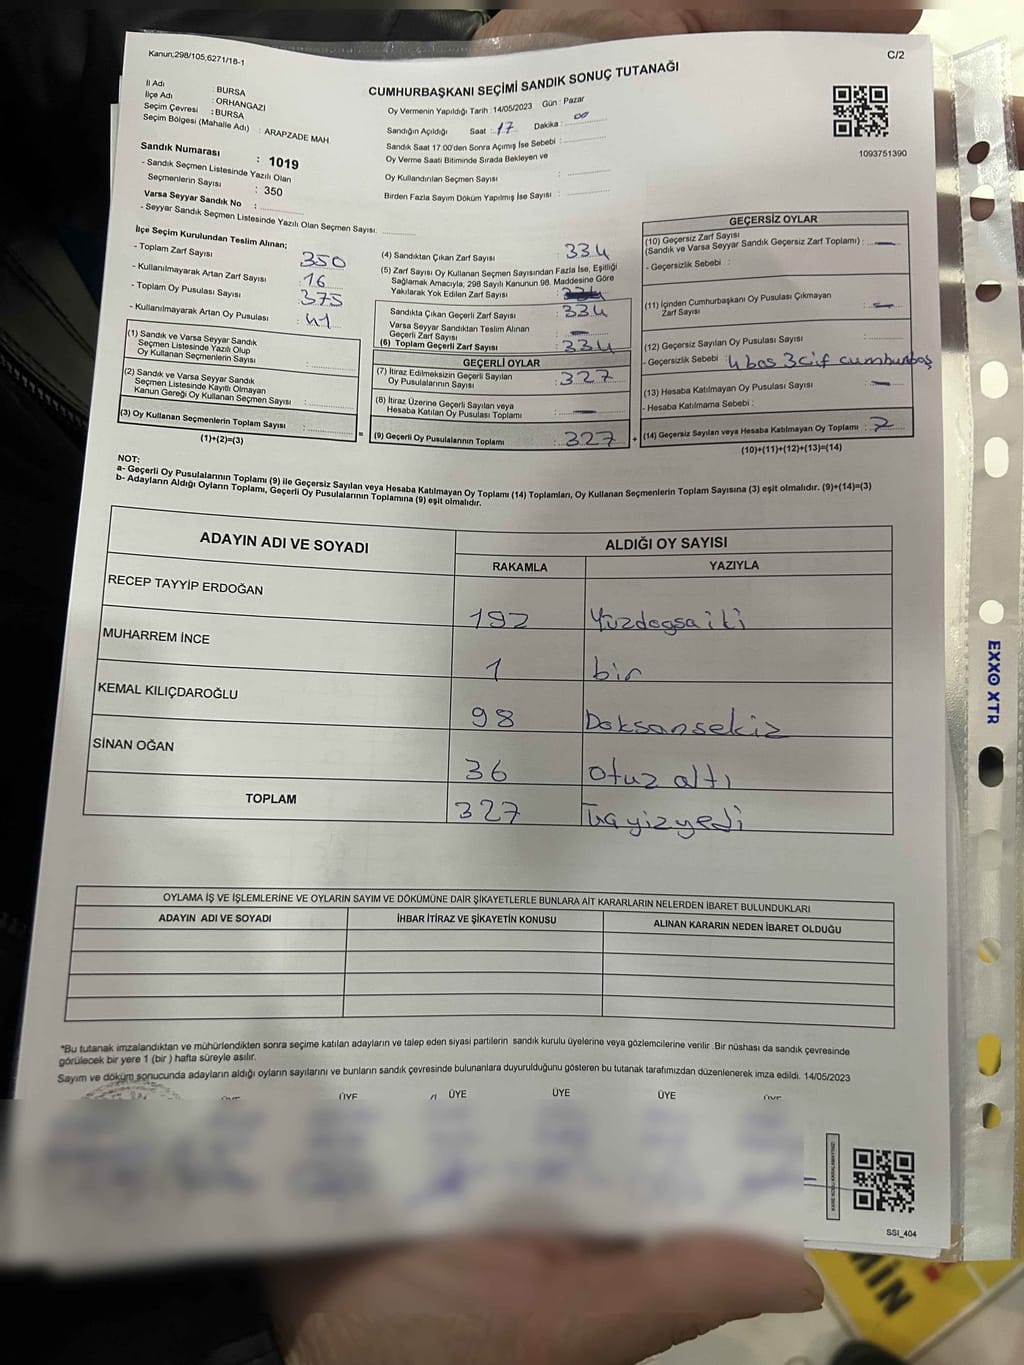 Kanun;298/105,6271/18-1
C/2
CUMHURBAŞKANI SEÇİMİ SANDIK SONUÇ TUTANAĞI
İl Adı : BURSA
İlçe Adı : ORHANGAZİ
Seçim Çevresi : BURSA
Seçim Bölgesi (Mahalle Adı) : ARAPZADE MAH.
Sandık Numarası : 1019
- Sandık Seçmen Listesinde Yazılı Olan
Seçmenlerin Sayısı : 350
Varsa Seyyar Sandık No :
- Seyyar Sandık Seçmen Listesinde Yazılı Olan Seçmen Sayısı:
Oy Vermenin Yapıldığı Tarih : 14/05/2023 Gün : Pazar
Sandığın Açıldığı Saat : 17 Dakika : 00
Sandık Saat 17:00'den Sonra Açımış İse Sebebi :
Oy Verme Saati Bitiminde Sırada Bekleyen ve
Oy Kullandırılan Seçmen Sayısı :
Birden Fazla Sayım Döküm Yapılmış İse Sayısı :
1093751390
İlçe Seçim Kurulundan Teslim Alınan;
- Toplam Zarf Sayısı : 350
- Kullanılmayarak Artan Zarf Sayısı : 16
- Toplam Oy Pusulası Sayısı : 375
- Kullanılmayarak Artan Oy Pusulası : 41
(1) Sandık ve Varsa Seyyar Sandık
Seçmen Listesinde Yazılı Olup
Oy Kullanan Seçmenlerin Sayısı :
(2) Sandık ve Varsa Seyyar Sandık
Seçmen Listesinde Kayıtlı Olmayan
Kanun Gereği Oy Kullanan Seçmen Sayısı :
(3) Oy Kullanan Seçmenlerin Toplam Sayısı :
(1)+(2)=(3)
(4) Sandıktan Çıkan Zarf Sayısı : 334
(5) Zarf Sayısı Oy Kullanan Seçmen Sayısından Fazla İse, Eşitliği
Sağlamak Amacıyla; 298 Sayılı Kanunun 98. Maddesine Göre
Yakılarak Yok Edilen Zarf Sayısı :
Sandıkta Çıkan Geçerli Zarf Sayısı : 334
Varsa Seyyar Sandıktan Teslim Alınan
Geçerli Zarf Sayısı : —
(6) Toplam Geçerli Zarf Sayısı : 334
GEÇERLİ OYLAR
(7) İtiraz Edilmeksizin Geçerli Sayılan
Oy Pusulalarının Sayısı : 327
(8) İtiraz Üzerine Geçerli Sayılan veya
Hesaba Katılan Oy Pusulası Toplamı : —
= (9) Geçerli Oy Pusulalarının Toplamı : 327 +
GEÇERSİZ OYLAR
(10) Geçersiz Zarf Sayısı
(Sandık ve Varsa Seyyar Sandık Geçersiz Zarf Toplamı) : —
- Geçersizlik Sebebi :
(11) İçinden Cumhurbaşkanı Oy Pusulası Çıkmayan
Zarf Sayısı : —
(12) Geçersiz Sayılan Oy Pusulası Sayısı :
- Geçersizlik Sebebi : 4 bos 3 cif cumhurbaş
(13) Hesaba Katılmayan Oy Pusulası Sayısı : —
- Hesaba Katılmama Sebebi :
(14) Geçersiz Sayılan veya Hesaba Katılmayan Oy Toplamı : 7
(10)+(11)+(12)+(13)=(14)
NOT:
a- Geçerli Oy Pusulalarının Toplamı (9) ile Geçersiz Sayılan veya Hesaba Katılmayan Oy Toplamı (14) Toplamları, Oy Kullanan Seçmenlerin Toplam Sayısına (3) eşit olmalıdır. (9)+(14)=(3)
b- Adayların Aldığı Oyların Toplamı, Geçerli Oy Pusulalarının Toplamına (9) eşit olmalıdır.
ADAYIN ADI VE SOYADI ALDIĞI OY SAYISI
RAKAMLA YAZIYLA
RECEP TAYYİP ERDOĞAN 192 Yüzdogsaiki
MUHARREM İNCE 1 bir
KEMAL KILIÇDAROĞLU 98 Doksansekiz
SİNAN OĞAN 36 otuz altı
TOPLAM 327
OYLAMA İŞ VE İŞLEMLERİNE VE OYLARIN SAYIM VE DÖKÜMÜNE DAİR ŞİKAYETLERLE BUNLARA AİT KARARLARIN NELERDEN İBARET BULUNDUKLARI
ADAYIN ADI VE SOYADI İHBAR İTİRAZ VE ŞİKAYETİN KONUSU ALINAN KARARIN NEDEN İBARET OLDUĞU
*Bu tutanak imzalandıktan ve mühürlendikten sonra seçime katılan adayların ve talep eden siyasi partilerin sandık kurulu üyelerine veya gözlemcilerine verilir .Bir nüshası da sandık çevresinde
görülecek bir yere 1 (bir ) hafta süreyle asılır.
Sayım ve döküm sonucunda adayların aldığı oyların sayılarını ve bunların sandık çevresinde bulunanlara duyurulduğunu gösteren bu tutanak tarafımızdan düzenlenerek imza edildi. 14/05/2023
ÜYE ÜYE ÜYE ÜYE ÜYE ÜYE
SSI_404
EXXO XTR
MİN